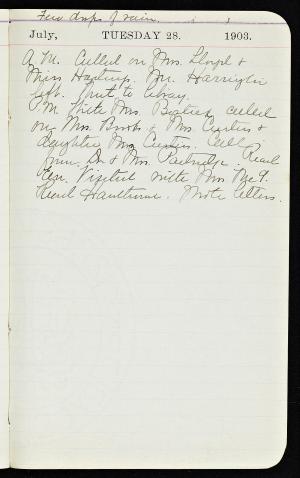 Few drops of rain.
July, TUESDAY 28. 1903.
A.M. Called on Mrs. Lloyd &
Miss Hastings. Mr. Harrington
left. Went to library.
P.M. With Mrs. called
on Mrs. Booth & Mrs. Curtiss &
daughter Mrs. Curtiss. Call
from Dr. & Mrs. Partridge. Read
Visited with Mrs. Mc
Read Hawthorne. Wrote letters.